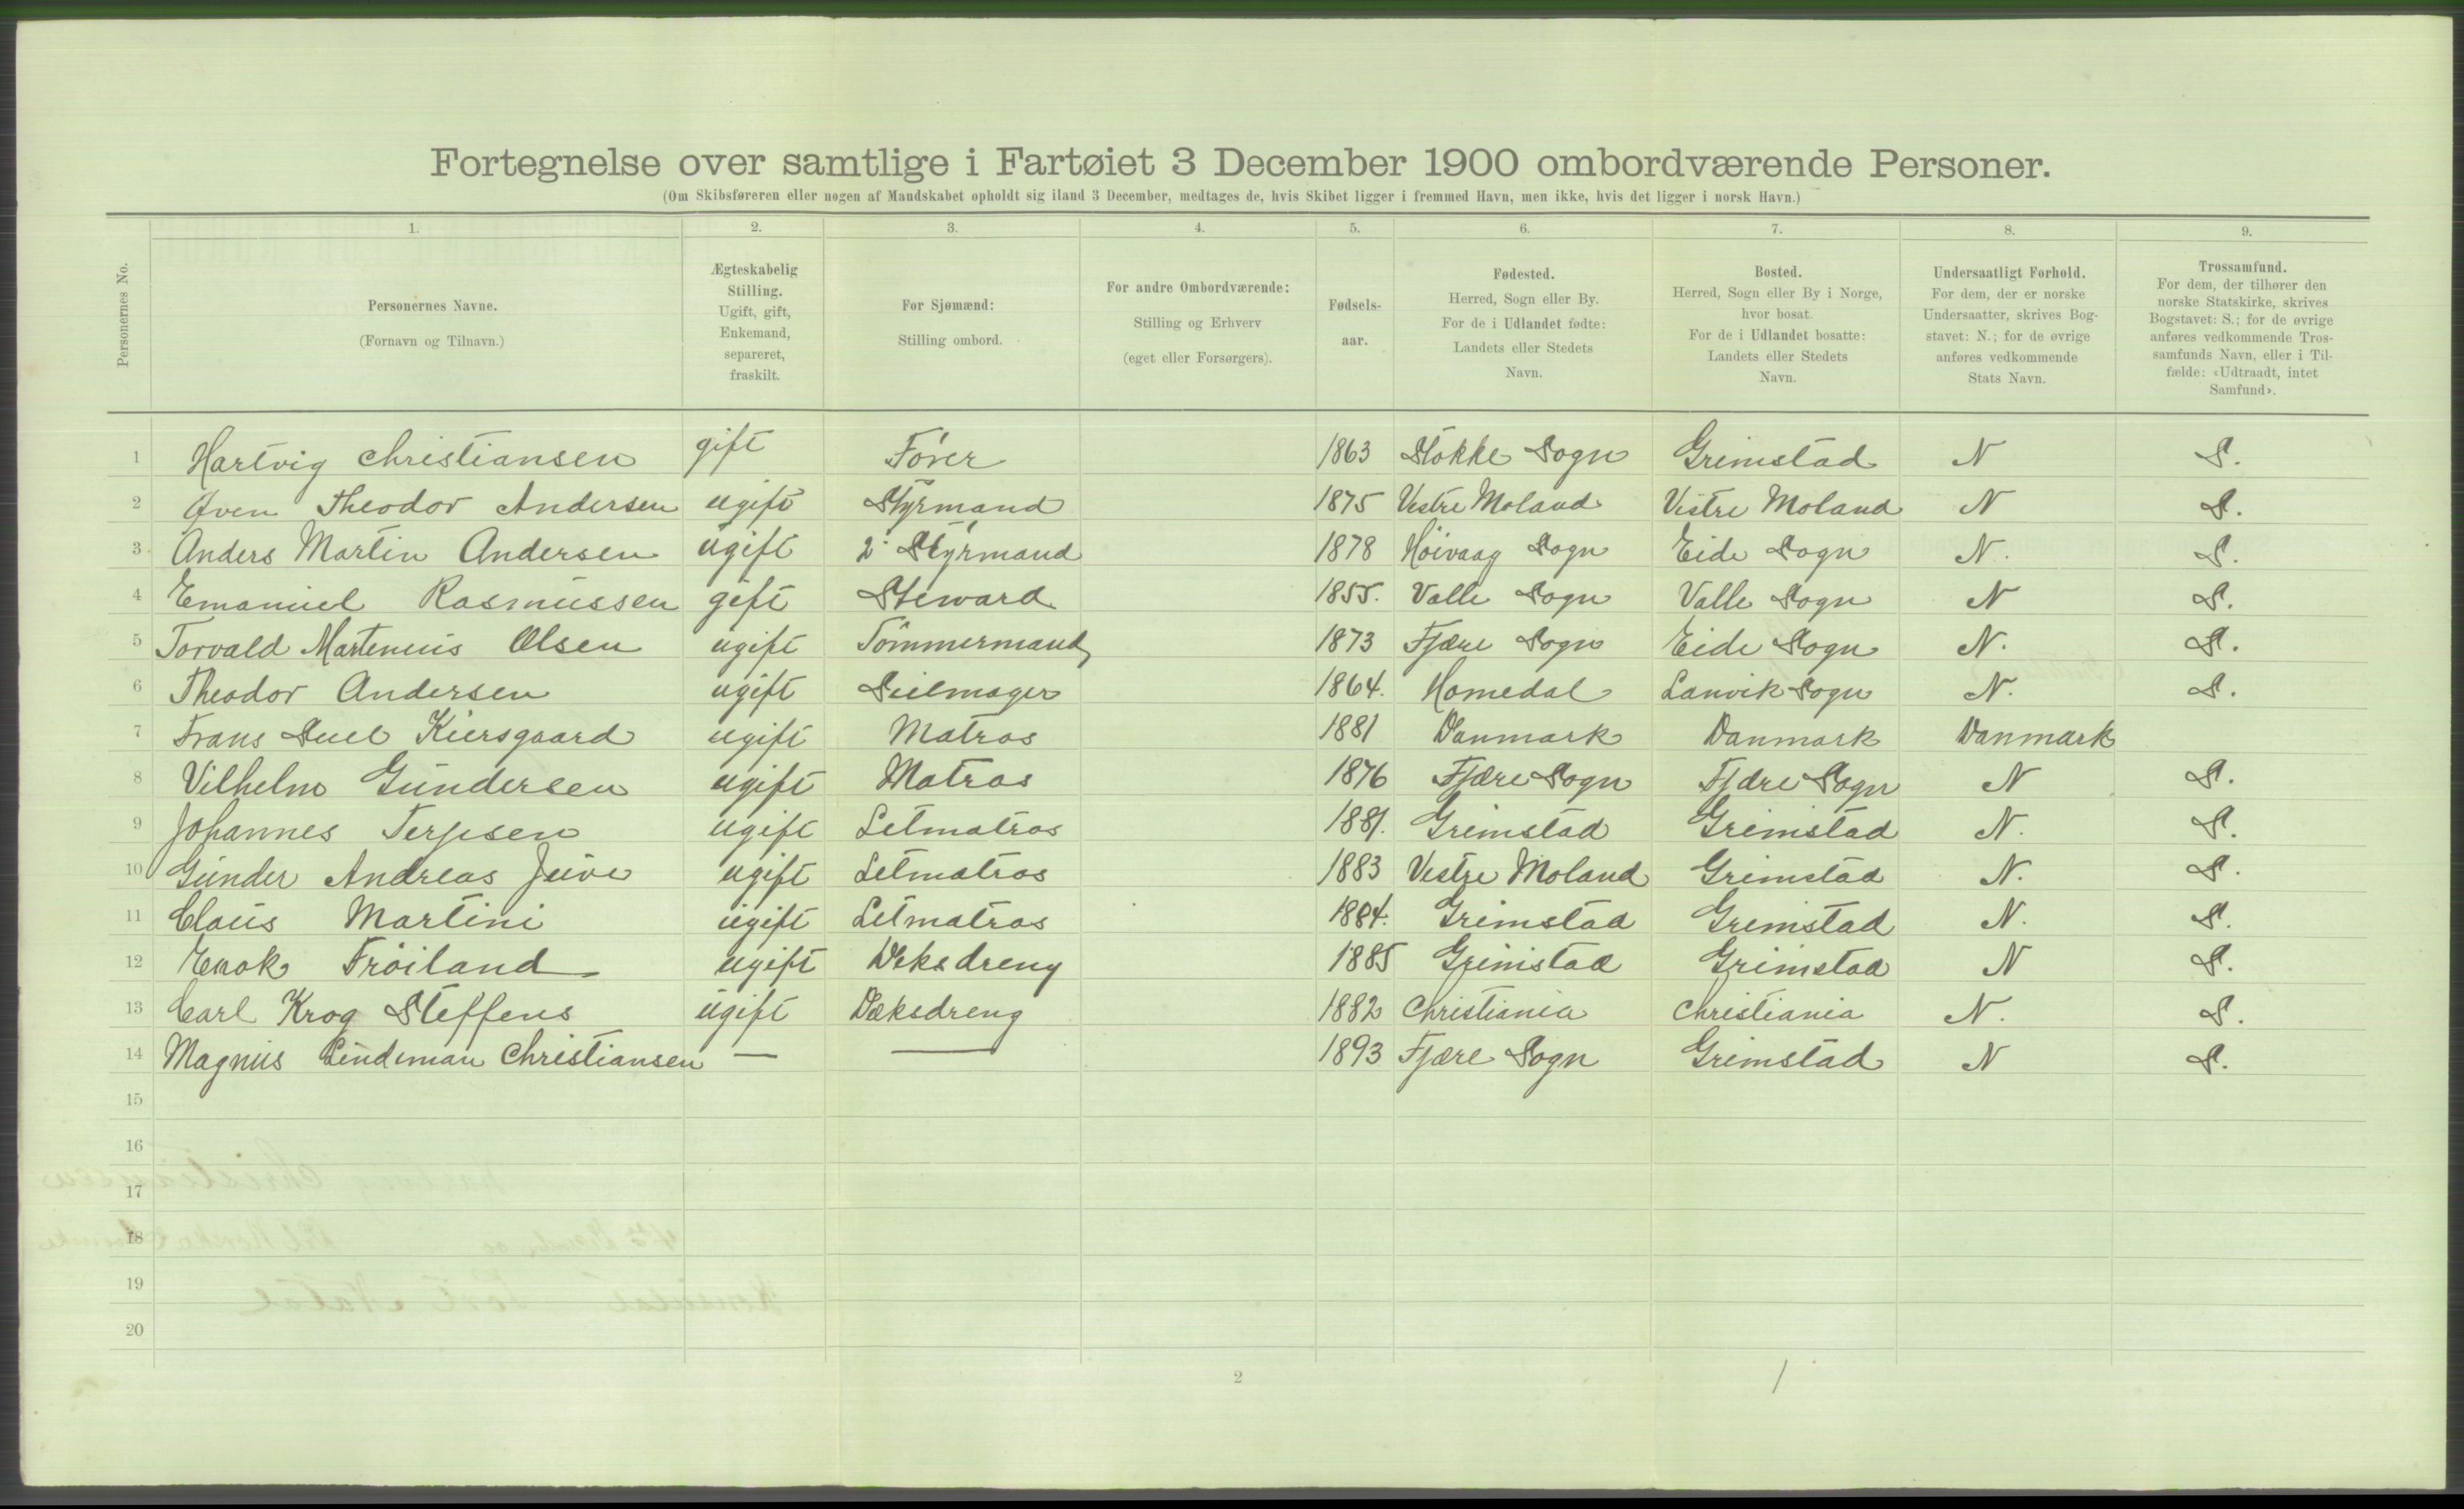 Fortegnelse over samtlige i Fartøiet 3 December 1900 ombordværende Personer.
(Om Skibsføreren eller nogen af Mandskabet opholdt sig iland 3 December, medtages de, hvis Skibet ligger i fremmed Havn, men ikke, hvis det ligger i norsk Havn.)
Personernes No.
1. 2. 3. 4. 5. 6. 7. 8. 9.
Personernes Navne.
(Fornavn og Tilnavn.)
Ægteskabelig
Stilling.
Ugift, gift,
Enkemand,
separeret,
fraskilt.
For Sjømænd:
Stilling ombord.
For andre Ombordværende:
Stilling og Erhverv
(eget eller Forsørgers).
Fødsels-
aar.
Fødested.
Herred, Sogn eller By.
For de i Udlandet fødte:
Landets eller Stedets
Navn.
Bosted.
Herred, Sogn eller By i Norge,
hvor bosat.
For de i Udlandet bosatte:
Landets eller Stedets
Navn.
Undersaatligt Forhold.
For dem, der er norske
Undersaatter, skrives Bog-
stavet: N.; for de øvrige
anføres vedkommende
Stats Navn.
Trossamfund.
For dem, der tilhører den
norske Statskirke, skrives
Bogstavet: S.; for de øvrige
anføres vedkommende Tros-
samfunds Navn, eller i Til-
fælde: «Udtraadt, intet
Samfund».
1 Hartvig Christiansen gift Fører 1863 Stokke Sogn Grimstad N S.
2 Theodor Andersen ugift Styrmand 1875 Vestre Moland Vestre Moland N S.
3 Anders Martin Andersen ugift 2 Styrmand 1878 Høivaag Sogn Eide Sogn N. S.
4 Emanuel Rasmussen gift Steward 1855. Valle Sogn Valle Sogn N S.
5 Torvald Martenius Olsen ugift Tømmermand 1873 Fjære Sogn Eide Sogn N. S.
6 Theodor Andersen ugift Seilmager 1864. Homedal Lanvik Sogn N. S.
7 Frans Kiersgaard ugift Matros 1881 Danmark Danmark Danmark
8 Vilhelm Gundersen ugift Matros 1876 Fjære Sogn Fjære Sogn N S.
9 Johannes Terjesen ugift Letmatros 1881. Grimstad Grimstad N. S.
10 Gunder Andreas Juve ugift Letmatros 1883 Vestre Moland Grimstad N. S.
11 Claus Martini ugift Letmatros 1884. Grimstad Grimstad N. S.
12 Enok Frøiland ugift Dæksdreng 1885 Grimstad Grimstad N S.
13 Carl Krog Steffens ugift Dæksdreng 1882 Christiania Christiania N. S.
14 Magnus Lindeman Christiansen — — 1893 Fjære Sogn Grimstad N S.
15
16
17
18
19
20
2